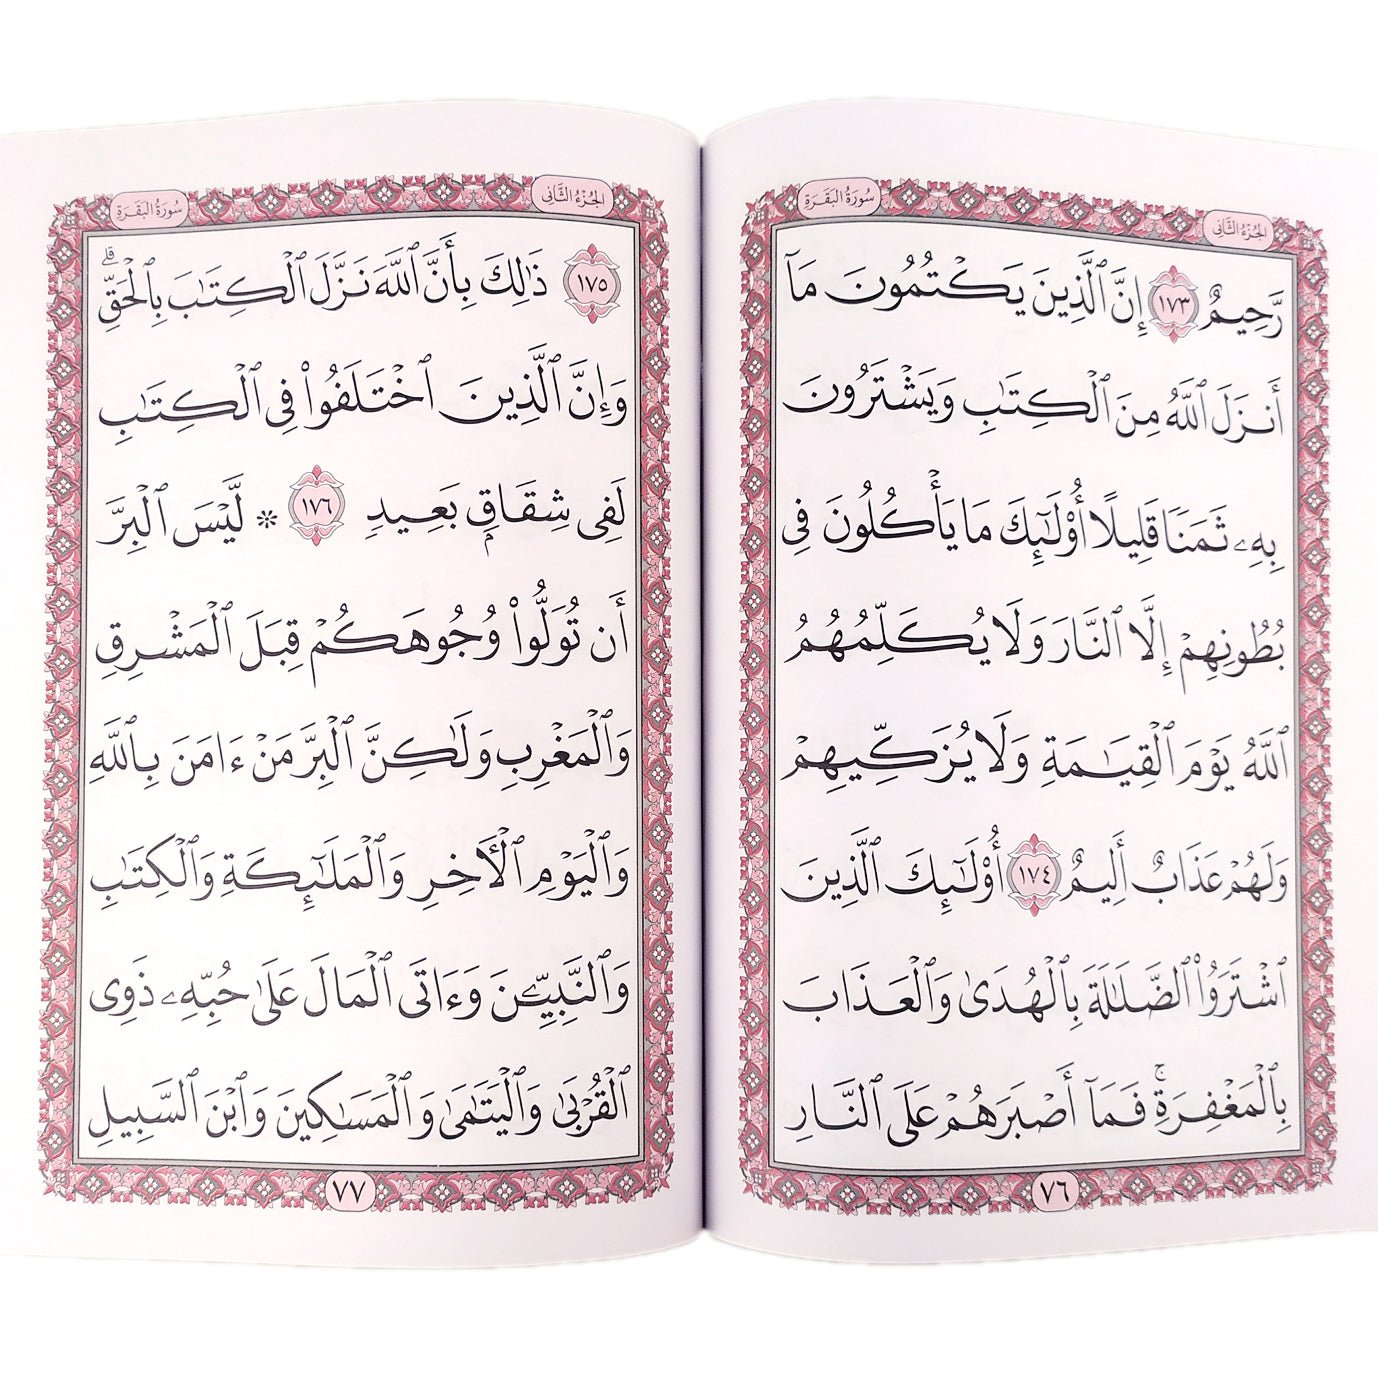 الجُزْءُ الثَّانِي
سُورَةُ البَقَرَةِ
رَّحِيمٌ ١٧٣ إِنَّ ٱلَّذِينَ يَكْتُمُونَ مَآ
أَنزَلَ ٱللَّهُ مِنَ ٱلْكِتَٰبِ وَيَشْتَرُونَ
بِهِۦ ثَمَنًا قَلِيلًا أُو۟لَٰٓئِكَ مَا يَأْكُلُونَ فِى
بُطُونِهِمْ إِلَّا ٱلنَّارَ وَلَا يُكَلِّمُهُمُ
ٱللَّهُ يَوْمَ ٱلْقِيَٰمَةِ وَلَا يُزَكِّيهِمْ
وَلَهُمْ عَذَابٌ أَلِيمٌ ١٧٤ أُو۟لَٰٓئِكَ ٱلَّذِينَ
ٱشْتَرَوُا۟ ٱلضَّلَٰلَةَ بِٱلْهُدَىٰ وَٱلْعَذَابَ
بِٱلْمَغْفِرَةِ ۚ فَمَآ أَصْبَرَهُمْ عَلَى ٱلنَّارِ
٧٦
الجُزْءُ الثَّانِي
سُورَةُ البَقَرَةِ
١٧٥ ذَٰلِكَ بِأَنَّ ٱللَّهَ نَزَّلَ ٱلْكِتَٰبَ بِٱلْحَقِّ ۗ
وَإِنَّ ٱلَّذِينَ ٱخْتَلَفُوا۟ فِى ٱلْكِتَٰبِ
لَفِى شِقَاقٍۭ بَعِيدٍ ١٧٦ * لَّيْسَ ٱلْبِرَّ
أَن تُوَلُّوا۟ وُجُوهَكُمْ قِبَلَ ٱلْمَشْرِقِ
وَٱلْمَغْرِبِ وَلَٰكِنَّ ٱلْبِرَّ مَنْ ءَامَنَ بِٱللَّهِ
وَٱلْيَوْمِ ٱلْءَاخِرِ وَٱلْمَلَٰٓئِكَةِ وَٱلْكِتَٰبِ
وَٱلنَّبِيِّۦنَ وَءَاتَى ٱلْمَالَ عَلَىٰ حُبِّهِۦ ذَوِى
ٱلْقُرْبَىٰ وَٱلْيَتَٰمَىٰ وَٱلْمَسَٰكِينَ وَٱبْنَ ٱلسَّبِيلِ
٧٧